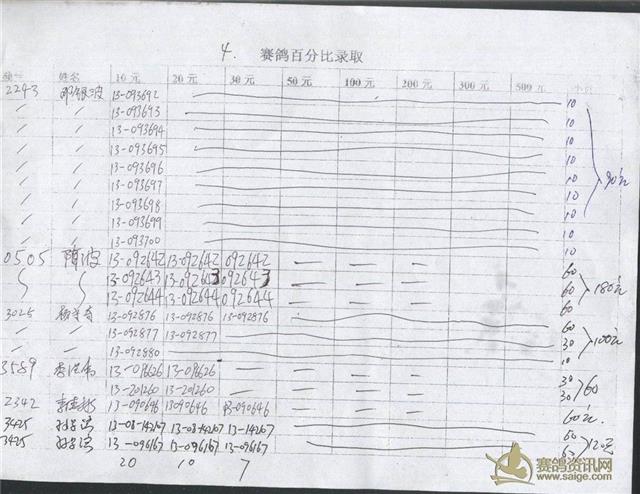 4. 赛鸽百分比录取
姓名 10元 20元 30元 50元 100元 200元 300元 500元 小计
2243 13-093692 10
〃 〃 13-093693 10
〃 〃 13-093694 10
〃 〃 13-093695 10
〃 〃 13-093696 10
〃 〃 13-093697 10 90元
〃 〃 13-093698 10
〃 〃 13-093699 10
〃 〃 13-093700 10
0505 13-092642 13-092642 092642 — — — 60
13-092643 13-092643 092643 — — — 60 180元
13-092644 13-092644 092644 — — — 60
3025 13-092876 13-092876 13-092876 60
〃 〃 13-092877 13-092877 30 100元
〃 〃 13-092880 10
3589 — — — 30 60
13-201260 13-201260 — — — 30
2342 13-090646 13090646 13-090646 — — — 60元
3425 60
3425 13-096167 13-096167 13-096167 60 120元
20 10 7
赛鸽资讯网
www.saige.com